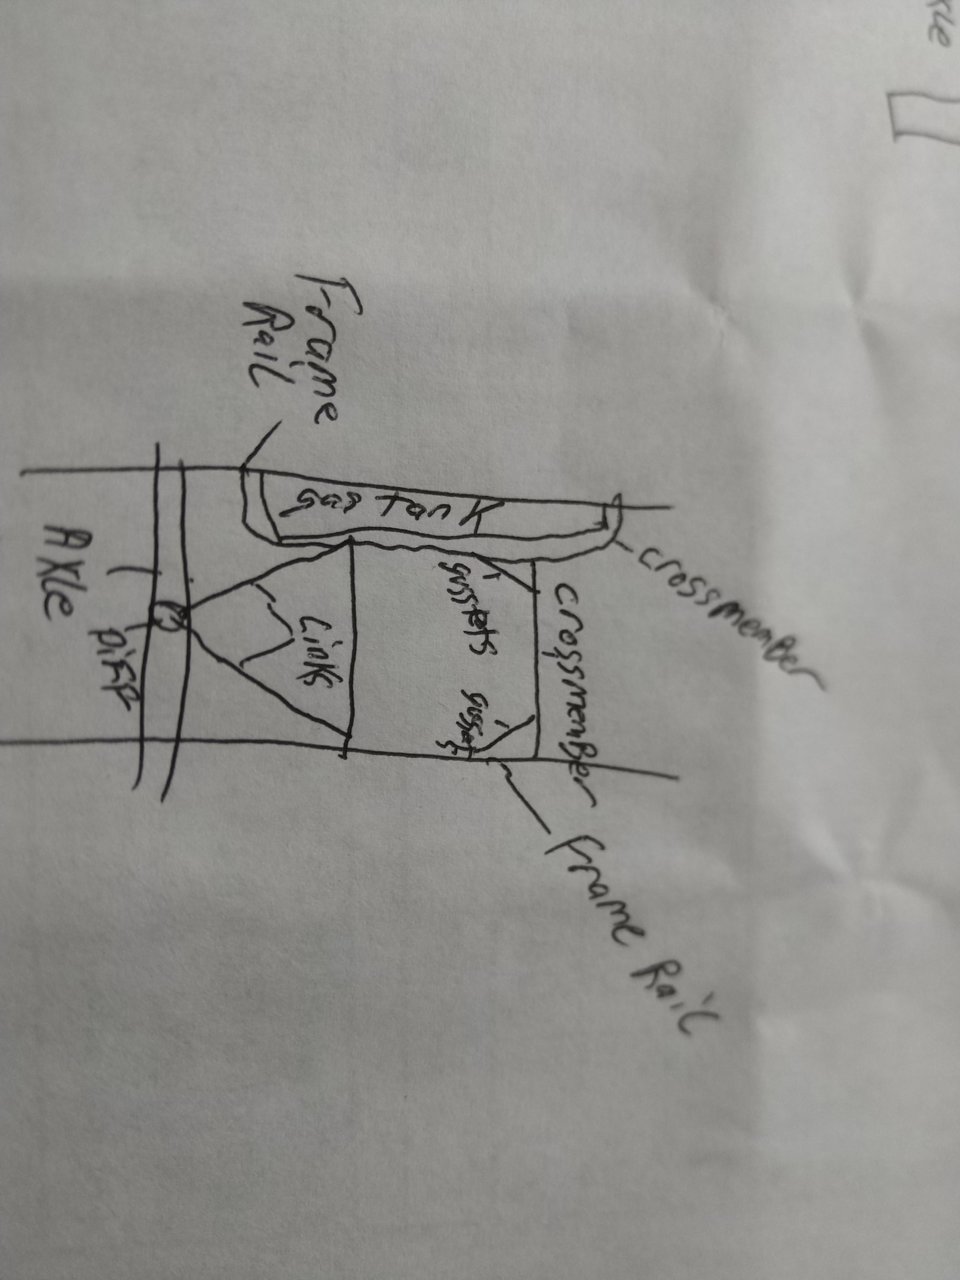 xle
Frame
Rail
gas tank
crossmember
crossmember
gussets
gusset
Links
Axle
Diff
Frame Rail